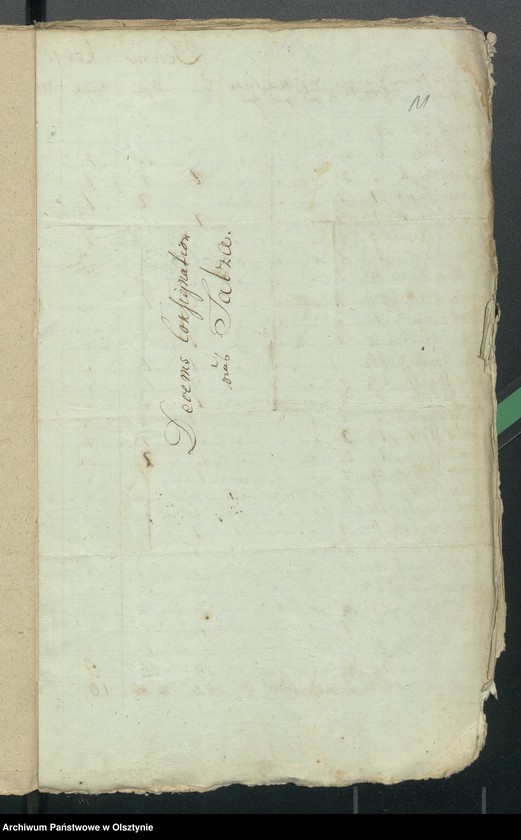 11
Decems Consignation
aus Salza.
Archiwum Państwowe w Olsztynie